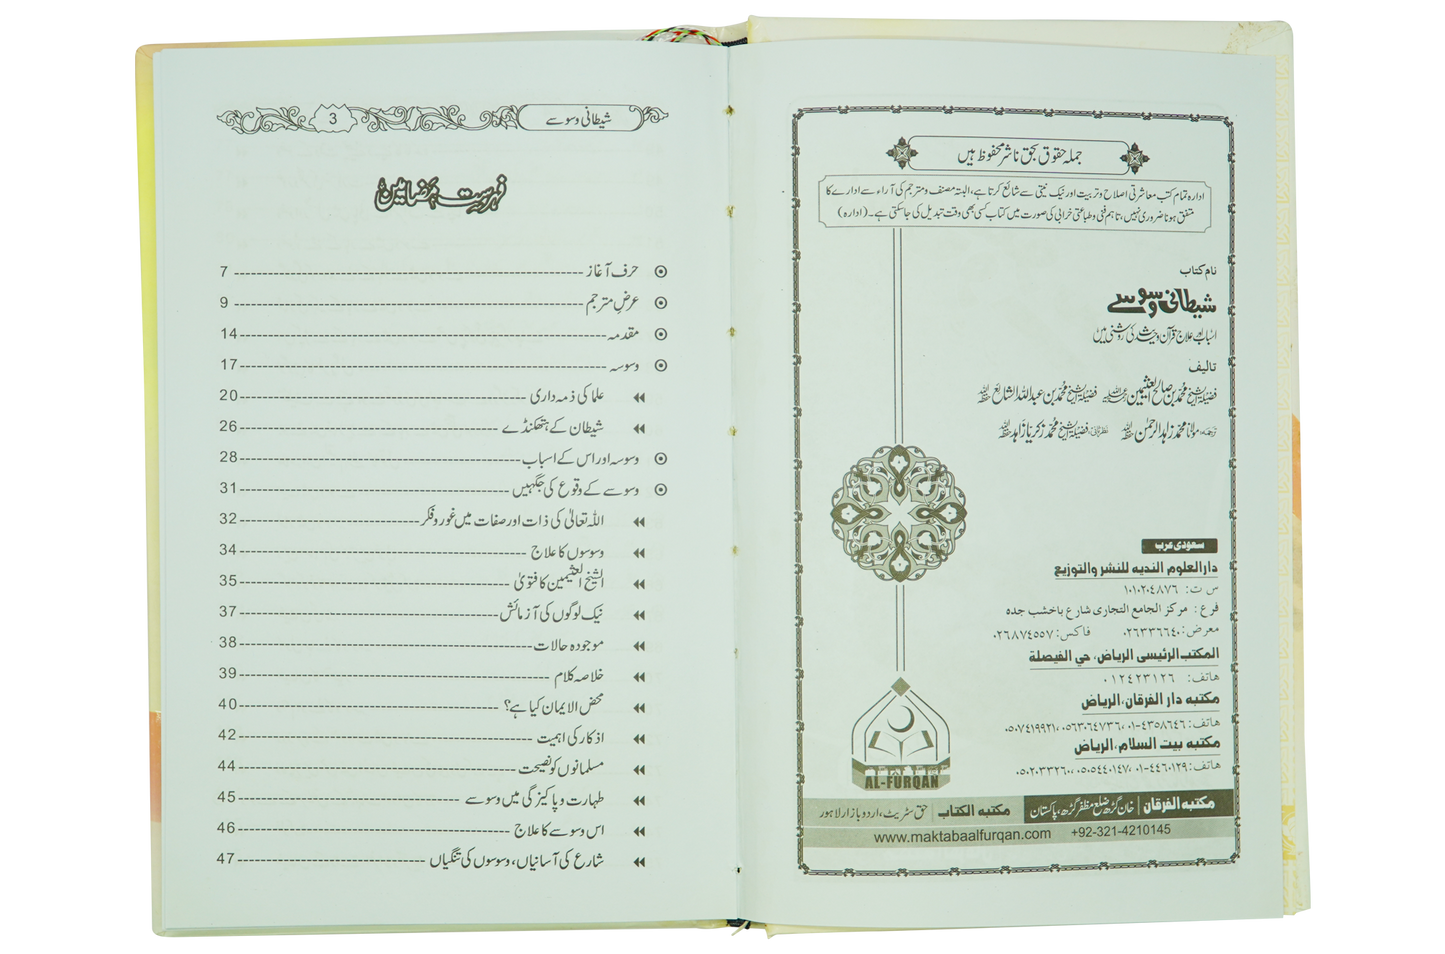 جملہ حقوق بحق ناشر محفوظ ہیں
ادارہ تمام کتب معاشرتی اصلاح و تربیت اور نیک نیتی سے شائع کرتا ہے، البتہ مصنف و مترجم کی آراء سے ادارے کا
متفق ہونا ضروری نہیں، تاہم فنی و طباعتی خرابی کی صورت میں کتاب کسی بھی وقت تبدیل کی جا سکتی ہے۔ (ادارہ)
نام کتاب
شیطانی وسوسے
اسباب اور علاج قرآن و حدیث کی روشنی میں
تالیف
فضیلۃ الشیخ محمد بن صالح العثیمین رحمہ اللہ فضیلۃ الشیخ محمد بن عبداللہ الشائع حفظہ اللہ
ترجمہ: مولانا محمد زاہد الرحمٰن حفظہ اللہ نظرثانی: فضیلۃ الشیخ محمد زکریا زاہد حفظہ اللہ
سعودی عرب
دار العلوم الندیہ للنشر والتوزیع
س ت: ١٠١٠٢٠٤٨٧٦
فرع: مرکز الجامع التجاری شارع باخشب جدہ
معرض: ٠٢٦٣٣٦٦٤٠ فاکس: ٠٢٦٨٧٤٥٥٧
المکتب الرئیسی الریاض، حي الفیصلة
هاتف: ٠١٢٤٢٣١٢٦
مکتبه دار الفرقان، الریاض
هاتف: ٠١-٤٣٥٨٦٤٦، ٠٥٦٣٠٦٤٧٣٦، ٠٥٠٧٤١٩٩٢١
مکتبه بیت السلام، الریاض
هاتف: ٠١-٤٤٦٠١٢٩، ٠٥٠٥٤٤٠١٤٧، ٠٥٠٢٠٣٣٢٦٠
AL-FURQAN
مکتبه الفرقان | خان گڑھ ضلع مظفر گڑھ، پاکستان مکتبه الکتاب | حق سٹریٹ، اردو بازار لاہور
www.maktabaalfurqan.com +92-321-4210145
شیطانی وسوسے 3
فہرست مضامین
حرف آغاز 7
عرض مترجم 9
مقدمہ 14
وسوسہ 17
علما کی ذمہ داری 20
شیطان کے ہتھکنڈے 26
وسوسہ اور اس کے اسباب 28
وسوسے کے وقوع کی جگہیں 31
اللہ تعالیٰ کی ذات اور صفات میں غور و فکر 32
وسوسوں کا علاج 34
الشیخ العثیمین کا فتویٰ 35
نیک لوگوں کی آزمائش 37
موجودہ حالات 38
خلاصہ کلام 39
محض الایمان کیا ہے؟ 40
اذکار کی اہمیت 42
مسلمانوں کو نصیحت 44
طہارت و پاکیزگی میں وسوسے 45
اس وسوسے کا علاج 46
شارع کی آسانیاں، وسوسوں کی تنگیاں 47